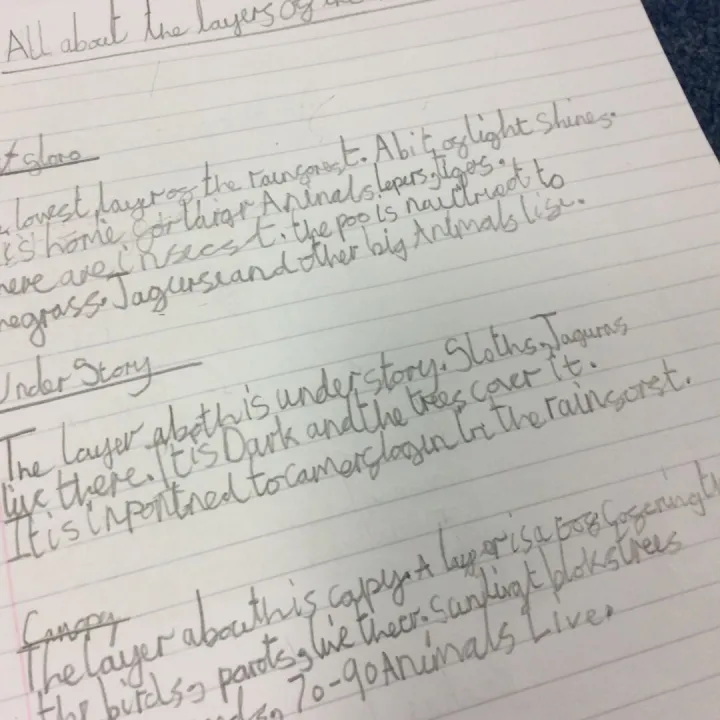 All about the layers of the
lowest layer of the rainforest. A bit of light shines.
is home for thier Aninals, lepers, tiges.
here are insecst. the poo is nutriod to
negrass. Jagurse and other big Animals live.
Under Story
The layer aboth is understory. Sloths, Jaguras
live there. It is Dark and the trees cover it.
It is inportned to camerflogun in the rainforst.
Canopy
The layer abouthis capy. A layer is a roof cofering th
the birds, parots, live theer. Sunligat bloks trees
70-90 Animals Live.